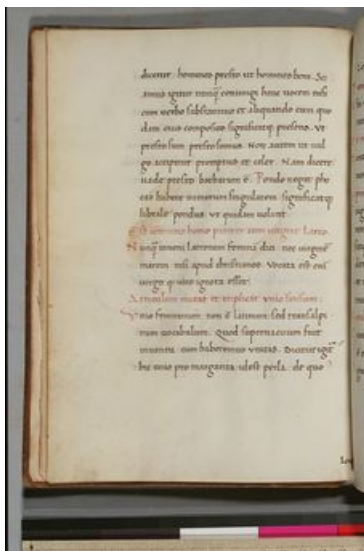 dicetur. homines presto ut homines boni. Sci
amus igitur nunq̄ coniungi hanc uocem nisi
cum uerbo substantiuo et aliquando cum quo
dam eius composito significatq; presens. Vt
presto sum presto sumus. Non autem ut uul
go accipitur promptus et celer. Nam dicere
uade presto barbarum ē. Pondo negat pho
cas habere numerum singularem significatq;
librale pondus ut quidam uolunt
homo pariter cum uirgine
Nunq̄ inueni Latinorum femina dici nec uirginē
marem nisi apud christianos. Vocata est eni
uirgo q; uiro ignota esset.
Articulum mutat et implicat unio sensum.
Vnio femininum non ē latinum sed transalpi
num uocabulum. Quod superuacuum fuit
inuentu cum haberemus unitas. Dicitur igit
hic unio pro margarita idest perla. de quo